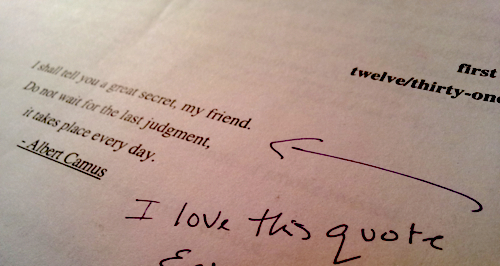 first
twelve/thirty-one
I shall tell you a great secret, my friend.
Do not wait for the last judgment,
it takes place every day.
- Albert Camus
I love this quote